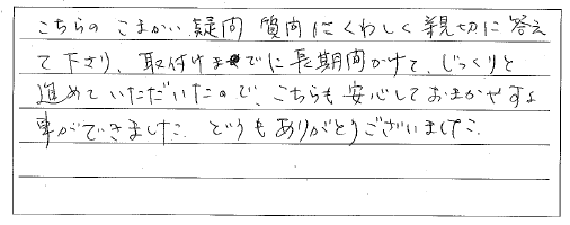 こちらの こまかい 疑問 質問に くわしく 親切に 答え
て下さり、取付けまでに長期間かけて、じっくりと
進めていただいたので、こちらも安心しておまかせする
事ができました。どうもありがとうございました。